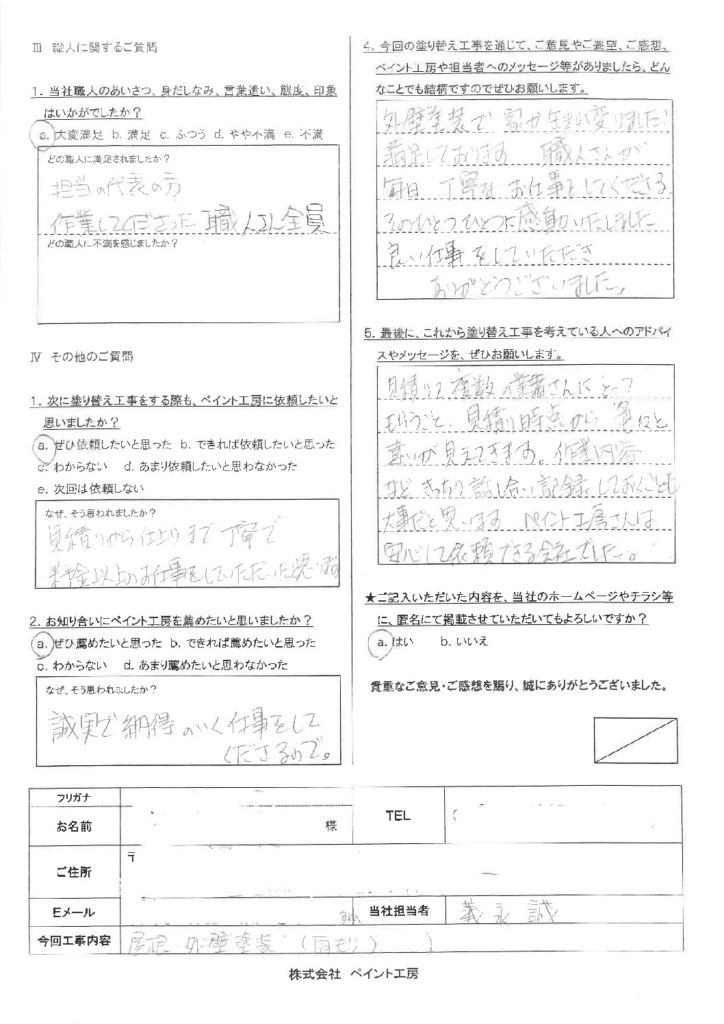 Ⅲ 職人に関するご質問
1. 当社職人のあいさつ、身だしなみ、言葉遣い、態度、印象
はいかがでしたか？
a. 大変満足 b. 満足 c. ふつう d. やや不満 e. 不満
どの職人に満足されましたか？
担当の代表の方
作業してくださった職人さん全員
どの職人に不満を感じましたか？
Ⅳ その他のご質問
1. 次に塗り替え工事をする際も、ペイント工房に依頼したいと
思いましたか？
a. ぜひ依頼したいと思った b. できれば依頼したいと思った
c. わからない d. あまり依頼したいと思わなかった
e. 次回は依頼しない
なぜ、そう思われましたか？
見積りから仕上りまで丁寧で
料金以上のお仕事をしていただいたと思い
2. お知り合いにペイント工房を薦めたいと思いましたか？
a. ぜひ薦めたいと思った b. できれば薦めたいと思った
c. わからない d. あまり薦めたいと思わなかった
なぜ、そう思われましたか？
誠実で納得のいく仕事をして
くださるので。
4. 今回の塗り替え工事を通じて、ご意見やご要望、ご感想、
ペイント工房や担当者へのメッセージ等がありましたら、どん
なことでも結構ですのでぜひお願いします。
外壁塗装で 家が生まれ変りました!
満足しております 職人さんが
毎日 丁寧な お仕事をしてくださる
そのひとつひとつに感動いたしました
良い仕事をしていただき
ありがとうございました。
5. 最後に、これから塗り替え工事を考えている人へのアドバイ
スやメッセージを、ぜひお願いします。
見積りを 複数の業者さんにとって
もらうこと、見積り時点から
違いが見えてきます。作業内容
など きっちり話し合い記録しておくことも
大事だと思います ペイント工房さんは
安心して依頼できる会社でした。
★ご記入いただいた内容を、当社のホームページやチラシ等
に、匿名にて掲載させていただいてもよろしいですか？
a. はい b. いいえ
貴重なご意見・ご感想を賜り、誠にありがとうございました。
フリガナ
お名前 様 TEL
ご住所 〒
Eメール 当社担当者 義永 誠
今回工事内容 屋根 外壁塗装 (雨もり)
株式会社 ペイント工房